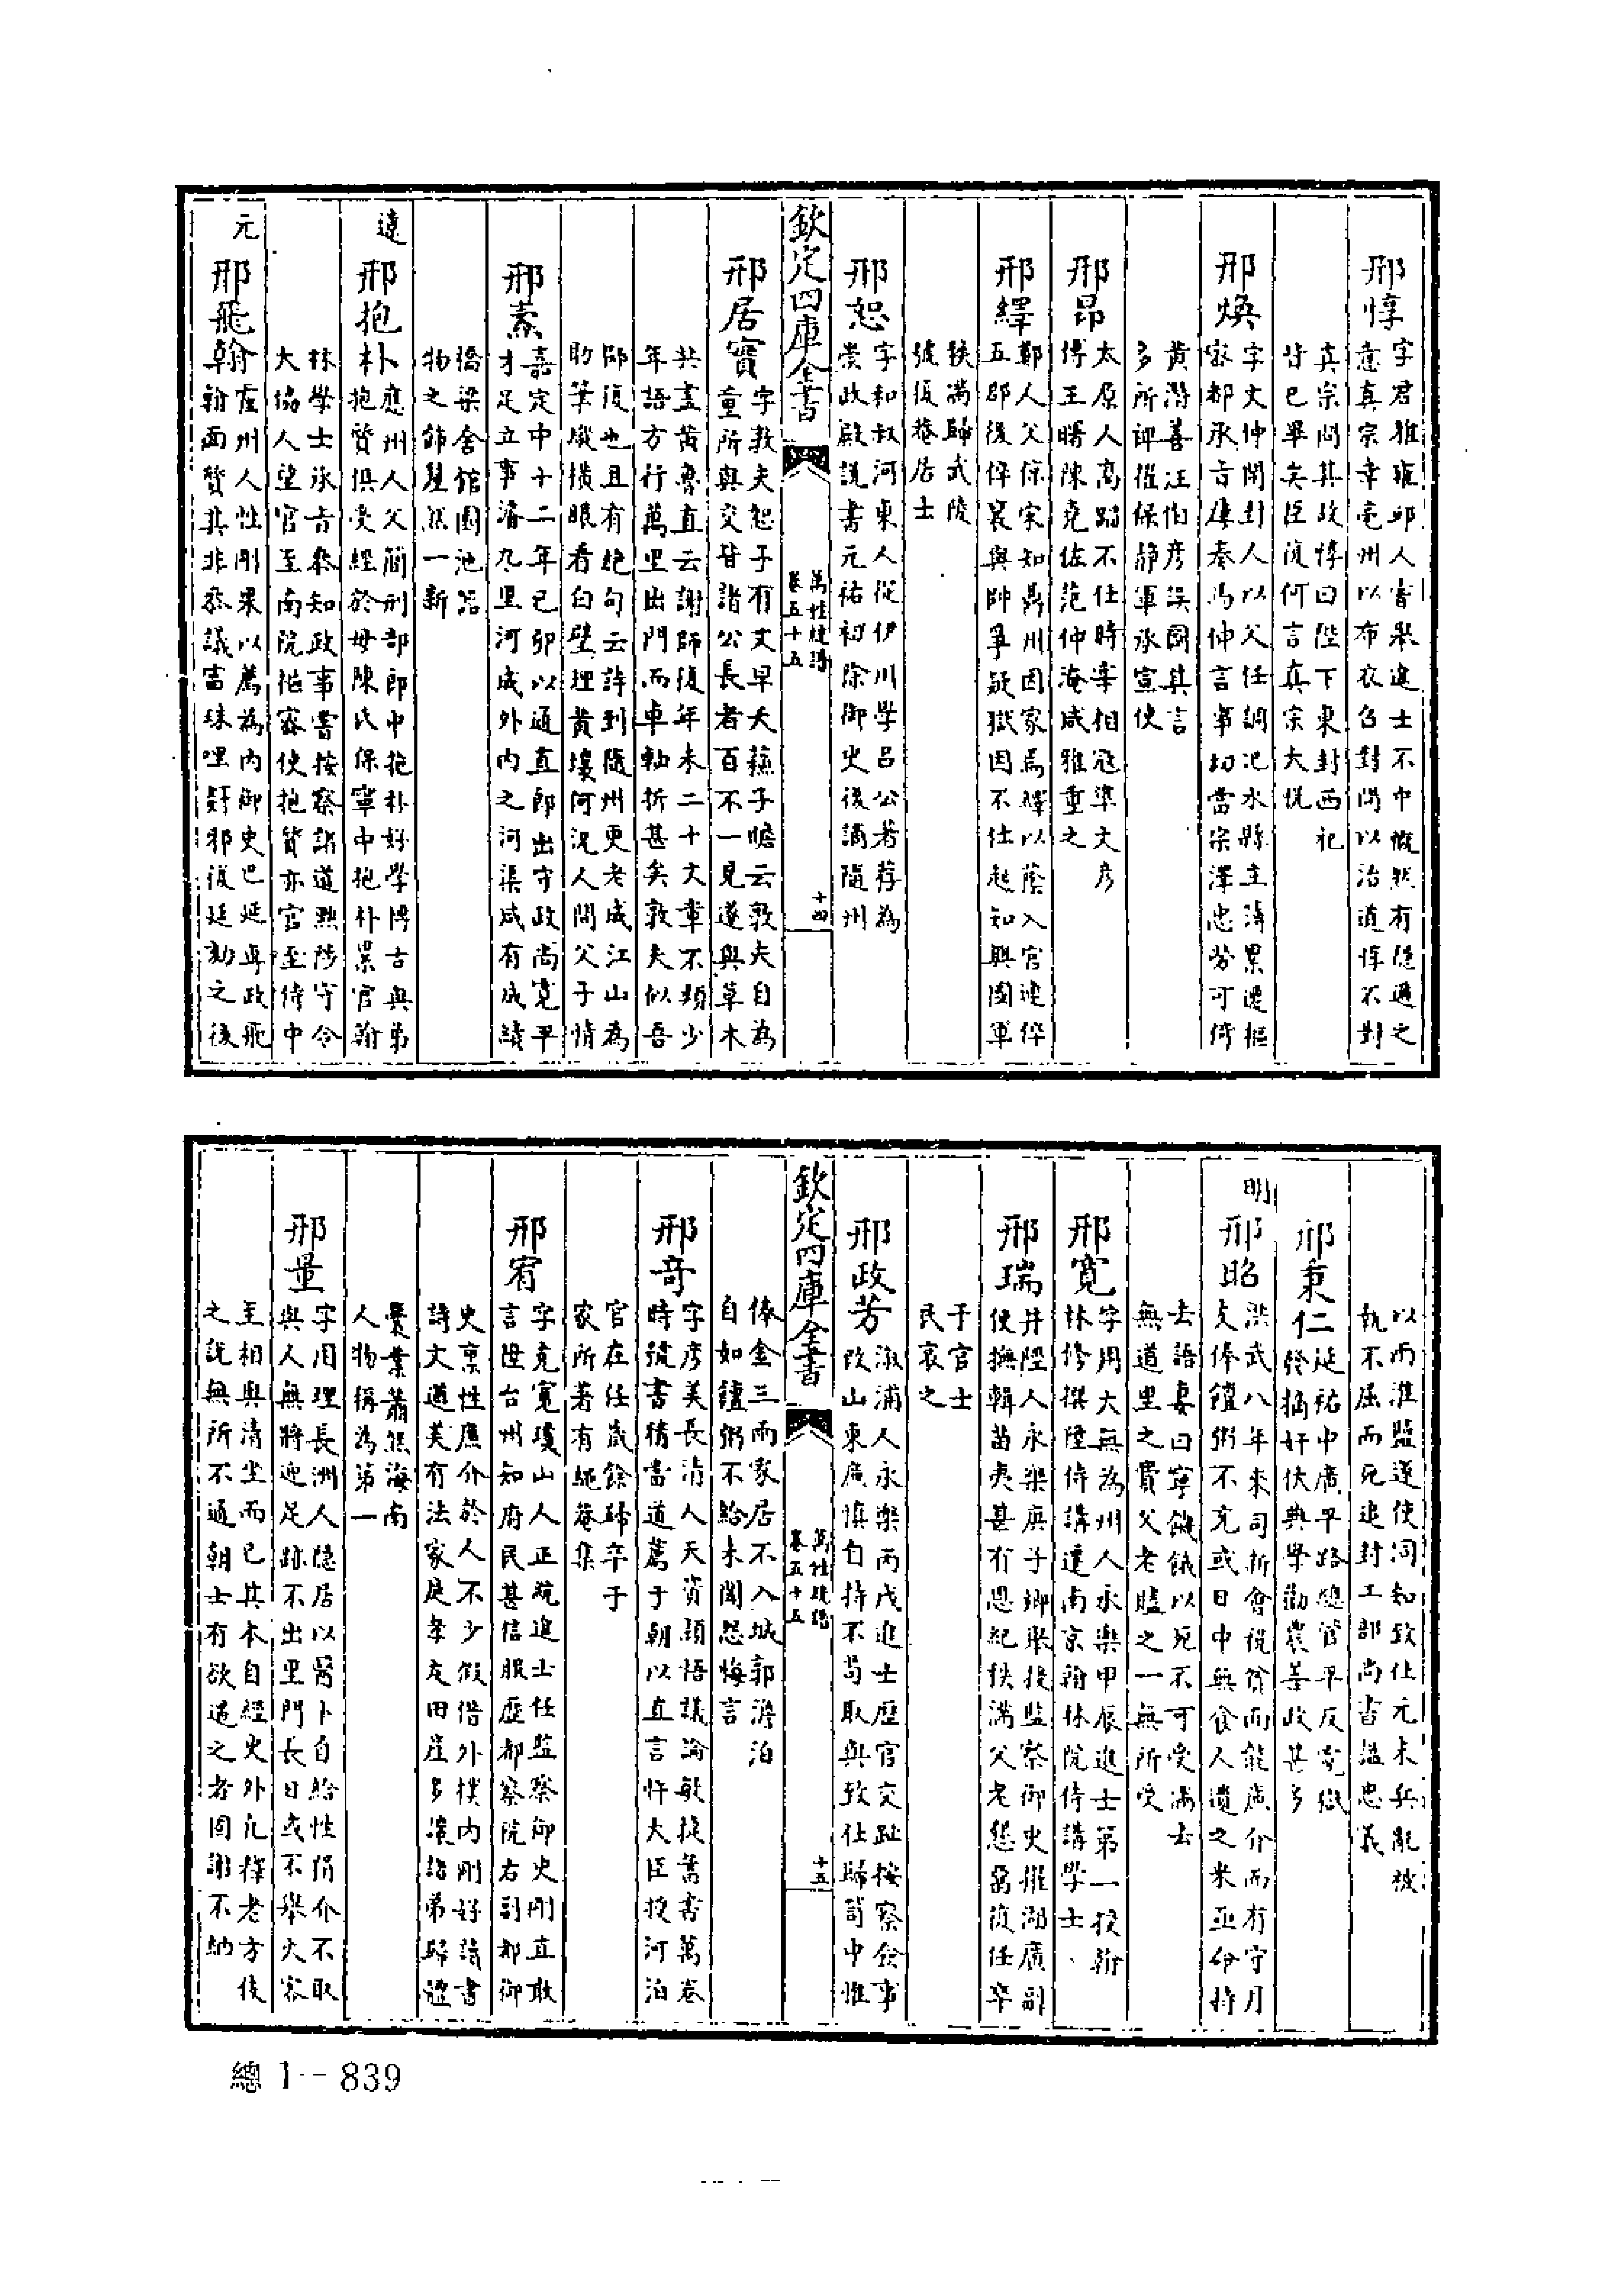 邢惇字君雅雍邱人嘗舉進士不中慨然有隱遯之
意真宗幸亳州以布衣召對問以治道惇不對
真宗問其故惇曰陛下東封西祀
皆已畢矣臣復何言真宗大悅
邢煥字文仲開封人以父任調汜水縣主簿累遷樞
密都承旨屢奏馬伸言事切當宗澤忠勞可倚
黄潛善汪伯彦誤國其言
多所裨擢保静軍承宣使
邢昂太原人高蹈不仕時宰相寇準文彦
博王曙陳堯佐范仲淹咸雅重之
邢繹鄭人父倧宋知鼎州因家焉繹以蔭入官連倅
五郡後倅襄與帥爭疑獄因不仕起知興國軍
秩滿歸武陵
號復菴居士
邢恕字和叔河東人從伊川學吕公著荐為
崇政殿說書元祐初除御史後謫隨州
欽定四庫全書
萬姓統譜
卷五十五
十四
邢居實字敦夫恕子有文早夭蘇子瞻云敦夫自為
童所與交皆諸公長者百不一見遂與草木
共盡黄魯直云謝師復年未二十文章不類少
年語方行萬里出門而車軸折甚矣敦夫似吾
師復也且有絶句云詩到隨州更老成江山為
助筆縱横眼看白壁埋黄壤何況人間父子情
邢燾嘉定中十二年己卯以通直郎出守政尚寛平
才足立事濬九里河成外内之河渠咸有成績
橋梁舍館園池器
物之飾釐然一新
遼
邢抱朴應州人父簡刑部郎中抱朴好學博古與弟
抱質俱受經於母陳氏保寧中抱朴累官翰
林學士承旨參知政事嘗按察諸道黜陟守令
大協人望官至南院樞密使抱質亦官至侍中
元
邢飛翰霍州人性剛果以薦為内御史巴延專政飛
翰面贊其非參議富珠哩
邪復廷劾之後
以兩淮鹽運使同知致仕元末兵亂被
執不屈而死追封工部尚書謚忠義
邢秉仁延祐中廣平路總管平反寃獄
發摘奸伏典學勸農善政甚多
明
邢昭洪武八年來司新會税貧而能廉介而有守月
支俸饘粥不充或日中無食人遺之米亟命持
去語妻曰寧饑餓以死不可受滿去
無道里之費父老贐之一無所受
邢寛字用大無為州人永樂甲辰進士第一授翰
林修撰陞侍講遷南京翰林院侍講學士
邢瑞井陘人永樂庚子鄉舉授監察御史擢湖廣副
使撫輯苗夷甚有恩紀秩滿父老懇留復任卒
于官士
民哀之
邢政芳溆浦人永樂丙戌進士歴官交趾按察僉事
改山東廉慎自持不苟取與致仕歸笥中惟
欽定四庫全書
萬姓統譜
卷五十五
十五
俸金三兩家居不入城郭澹泊
自如饘粥不給未聞怨悔言
邢奇字彦美長清人天資穎悟議論敏捷蓄書萬卷
時號書積當道薦于朝以直言忤大臣授河泊
官在任歲餘歸卒于
家所著有純菴集
邢宥字克寛瓊山人正統進士任監察御史剛直敢
言陞台州知府民甚信服歴都察院右副都御
史禀性廉介於人不少假借外樸内剛好讀書
詩文遒美有法家庭孝友田産多讓諸弟歸殯
囊橐蕭然海南
人物稱為第一
邢量字用理長洲人隱居以醫卜自給性狷介不取
與人無將迎足跡不出里門長日或不舉火客
至相與清坐而已其本自經史外凡釋老方伎
之説無所不通朝士有欲造之者固謝不納
總 1-839